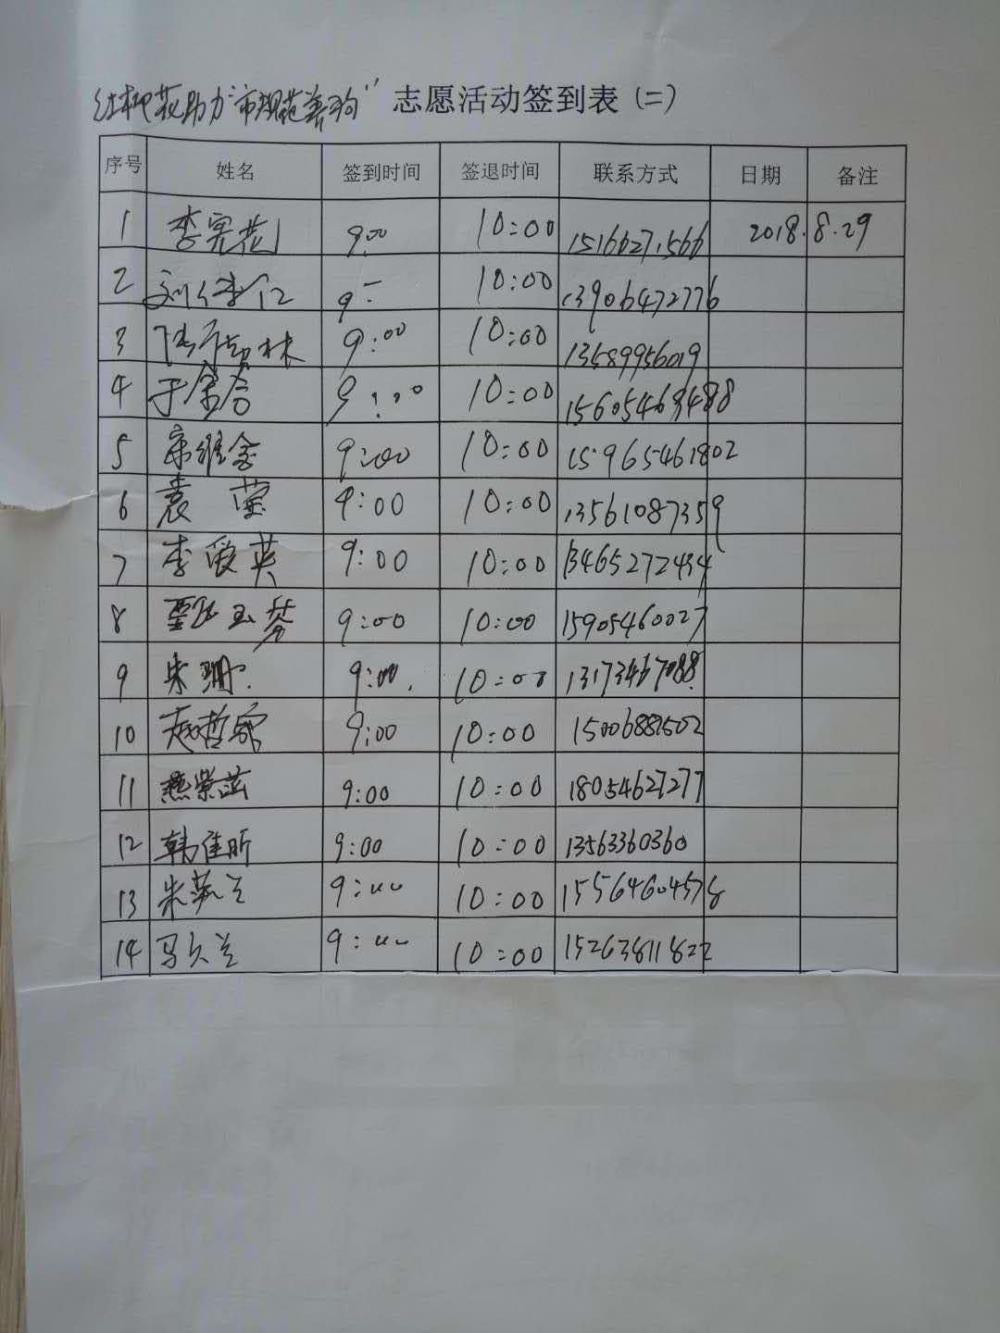 红柳花助力"市规范养狗" 志愿活动签到表(二)
序号 姓名 签到时间 签退时间 联系方式 日期 备注
1 李宪花 9:00 10:00 15166271566 2018.8.29
2 刘 9 10:00 13906472776
3 林 9:00 10:00 13589956019
4 于 9:00 10:00 15605463488
5 维金 9:00 10:00 15965461802
6 袁莹 9:00 10:00 13561087359
7 李爱英 9:00 10:00 13465272434
8 玉芬 9:00 10:00 15905460027
9 朱珊 9:00 10:00 13173467088
10 赵哲 9:00 10:00 15006881502
11 燕荣 9:00 10:00 18054627277
12 韩佳昕 9:00 10:00 13563360360
13 朱英兰 9:00 10:00 15564604578
14 马久兰 9:00 10:00 15263811822